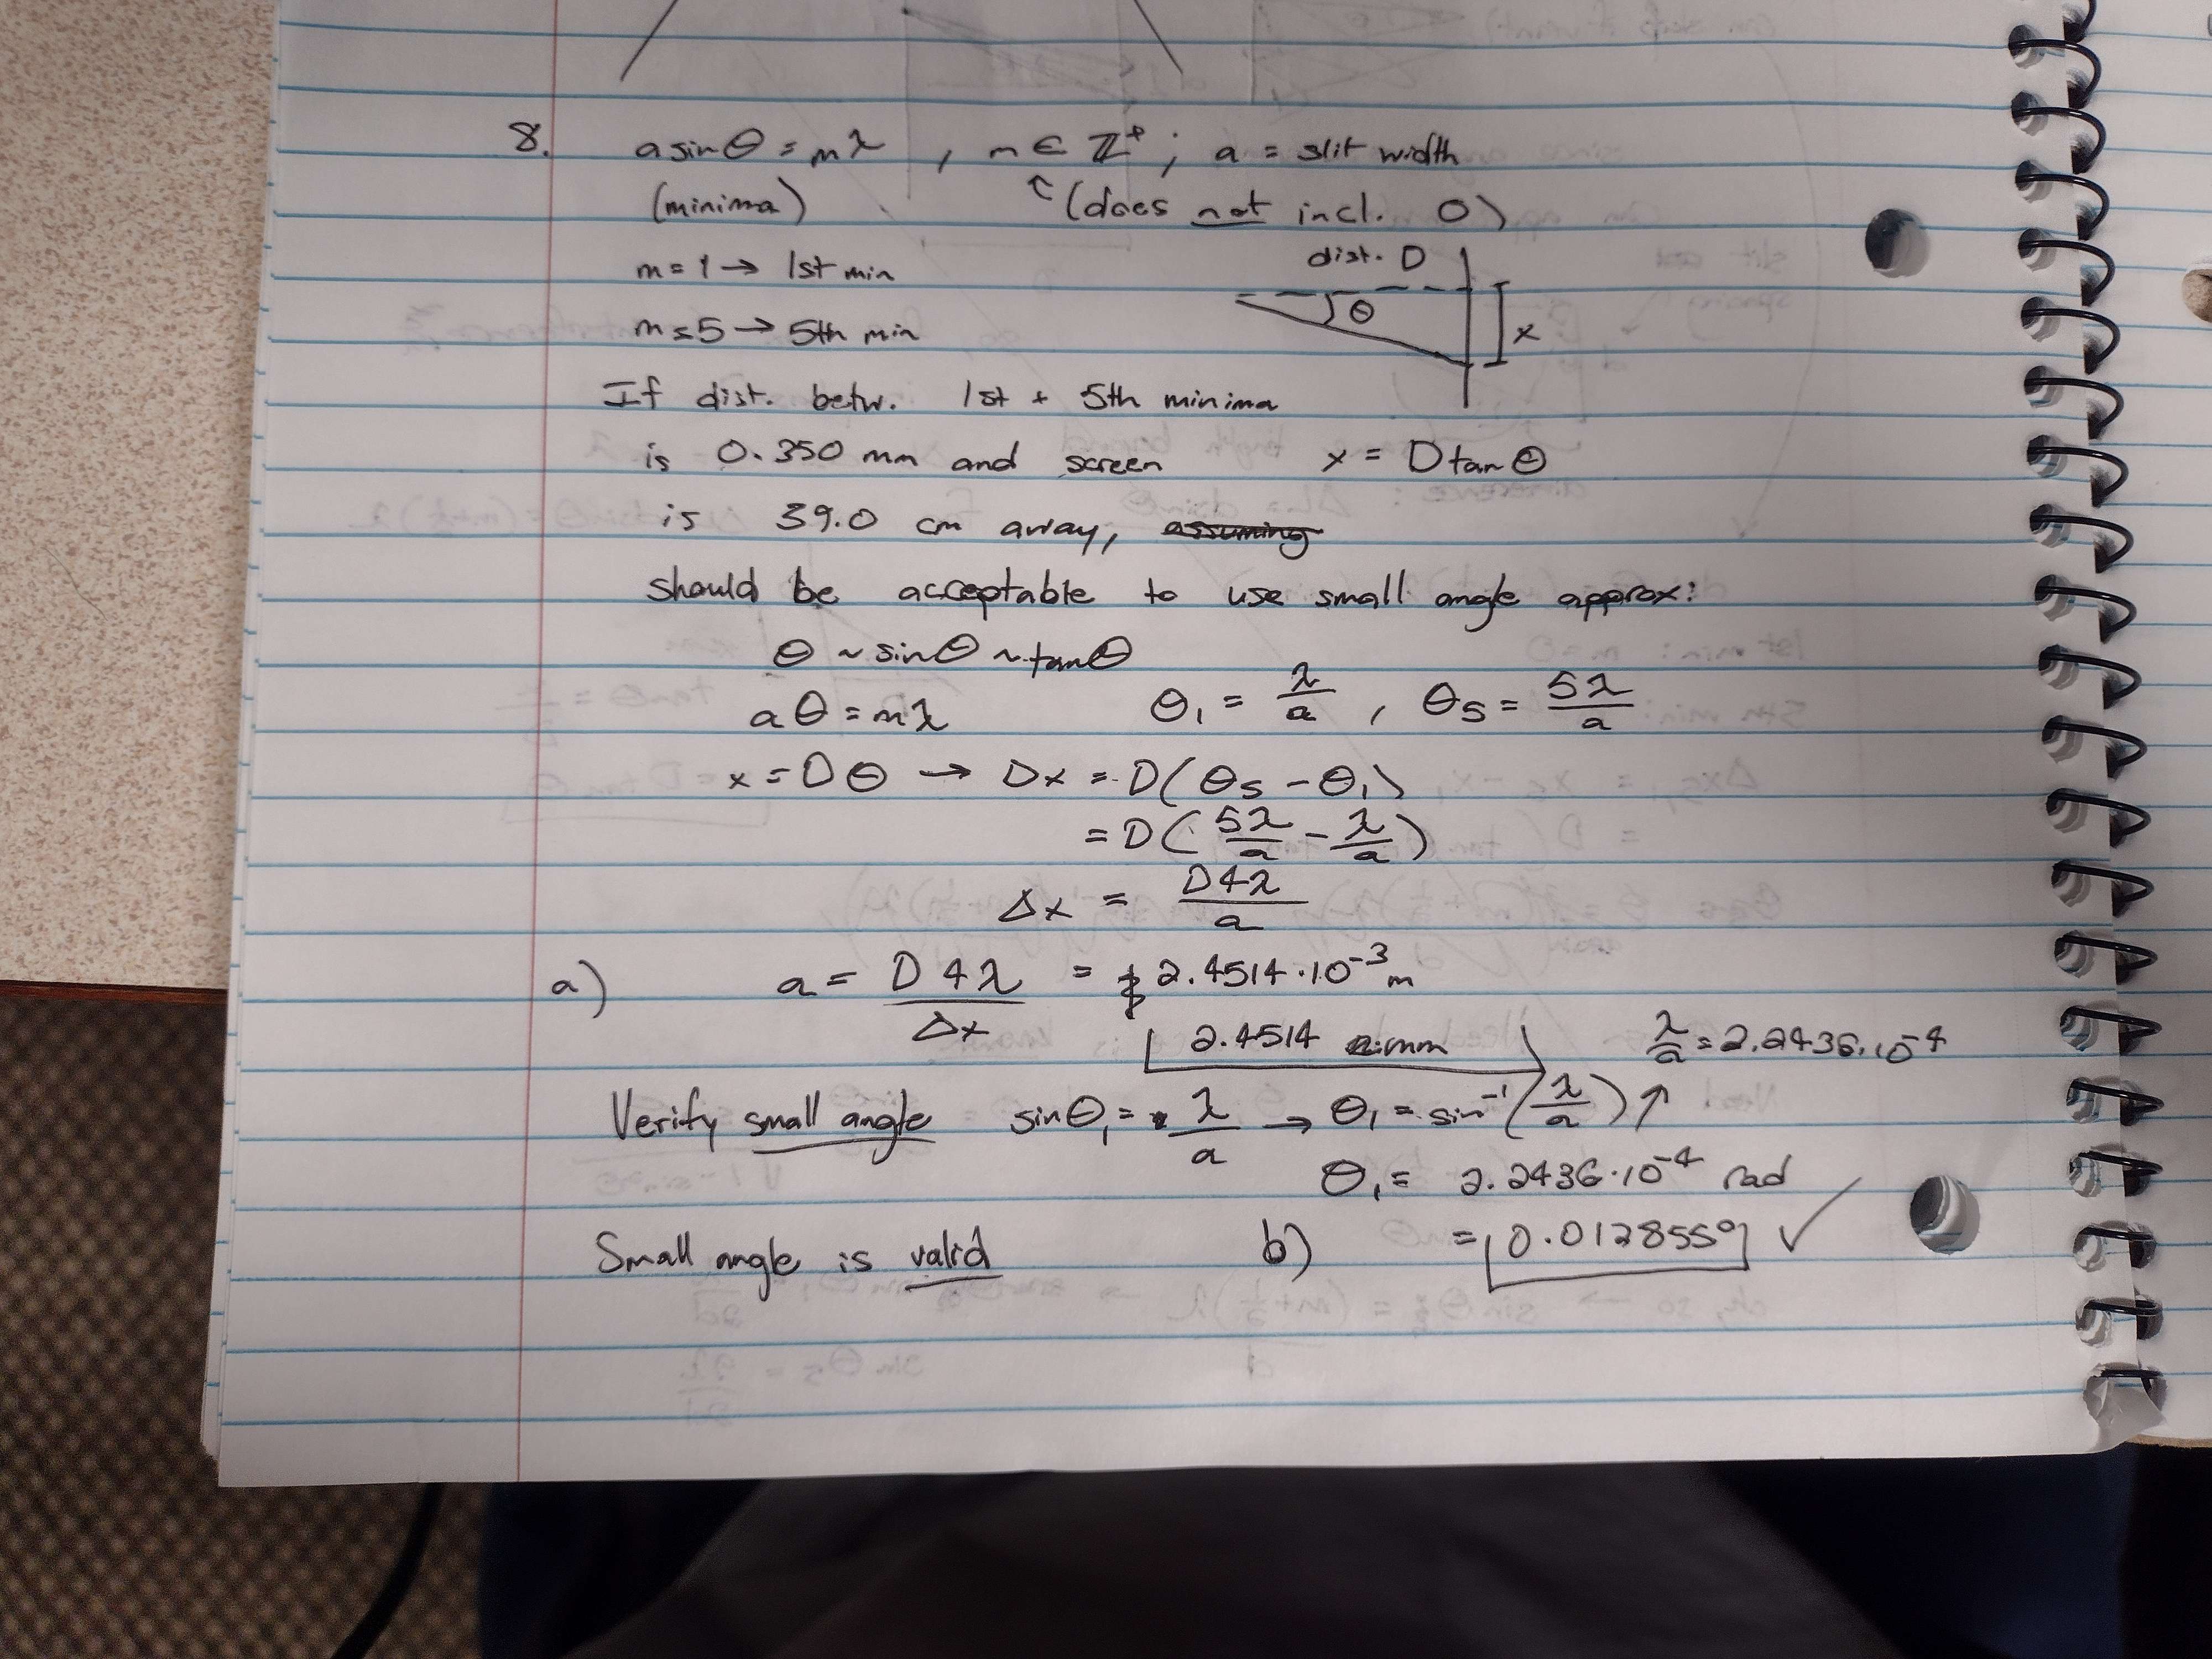 8. a sinθ = mλ , m ∈ ℤ⁺ ; a = slit width
(minima) ↑ (does not incl. 0)
m = 1 → 1st min
dist. D
m = 5 → 5th min
θ
x
If dist. betw. 1st + 5th minima
is 0.350 mm and screen
x = D tan θ
is 39.0 cm away, assuming
should be acceptable to use small angle approx:
θ ~ sinθ ~ tanθ
aθ = mλ θ₁ = λ/a , θ₅ = 5λ/a
x = Dθ → Dx = D(θ₅ - θ₁)
= D(5λ/a - λ/a)
Δx = D4λ/a
a) a = D4λ/Δx = 2.4514·10⁻³ m
2.4514 mm
λ/a = 2.2436·10⁻⁴
Verify small angle sinθ₁ = λ/a → θ₁ = sin⁻¹(λ/a) ↑
θ₁ = 2.2436·10⁻⁴ rad
Small angle is valid b) = 0.012855° ✓